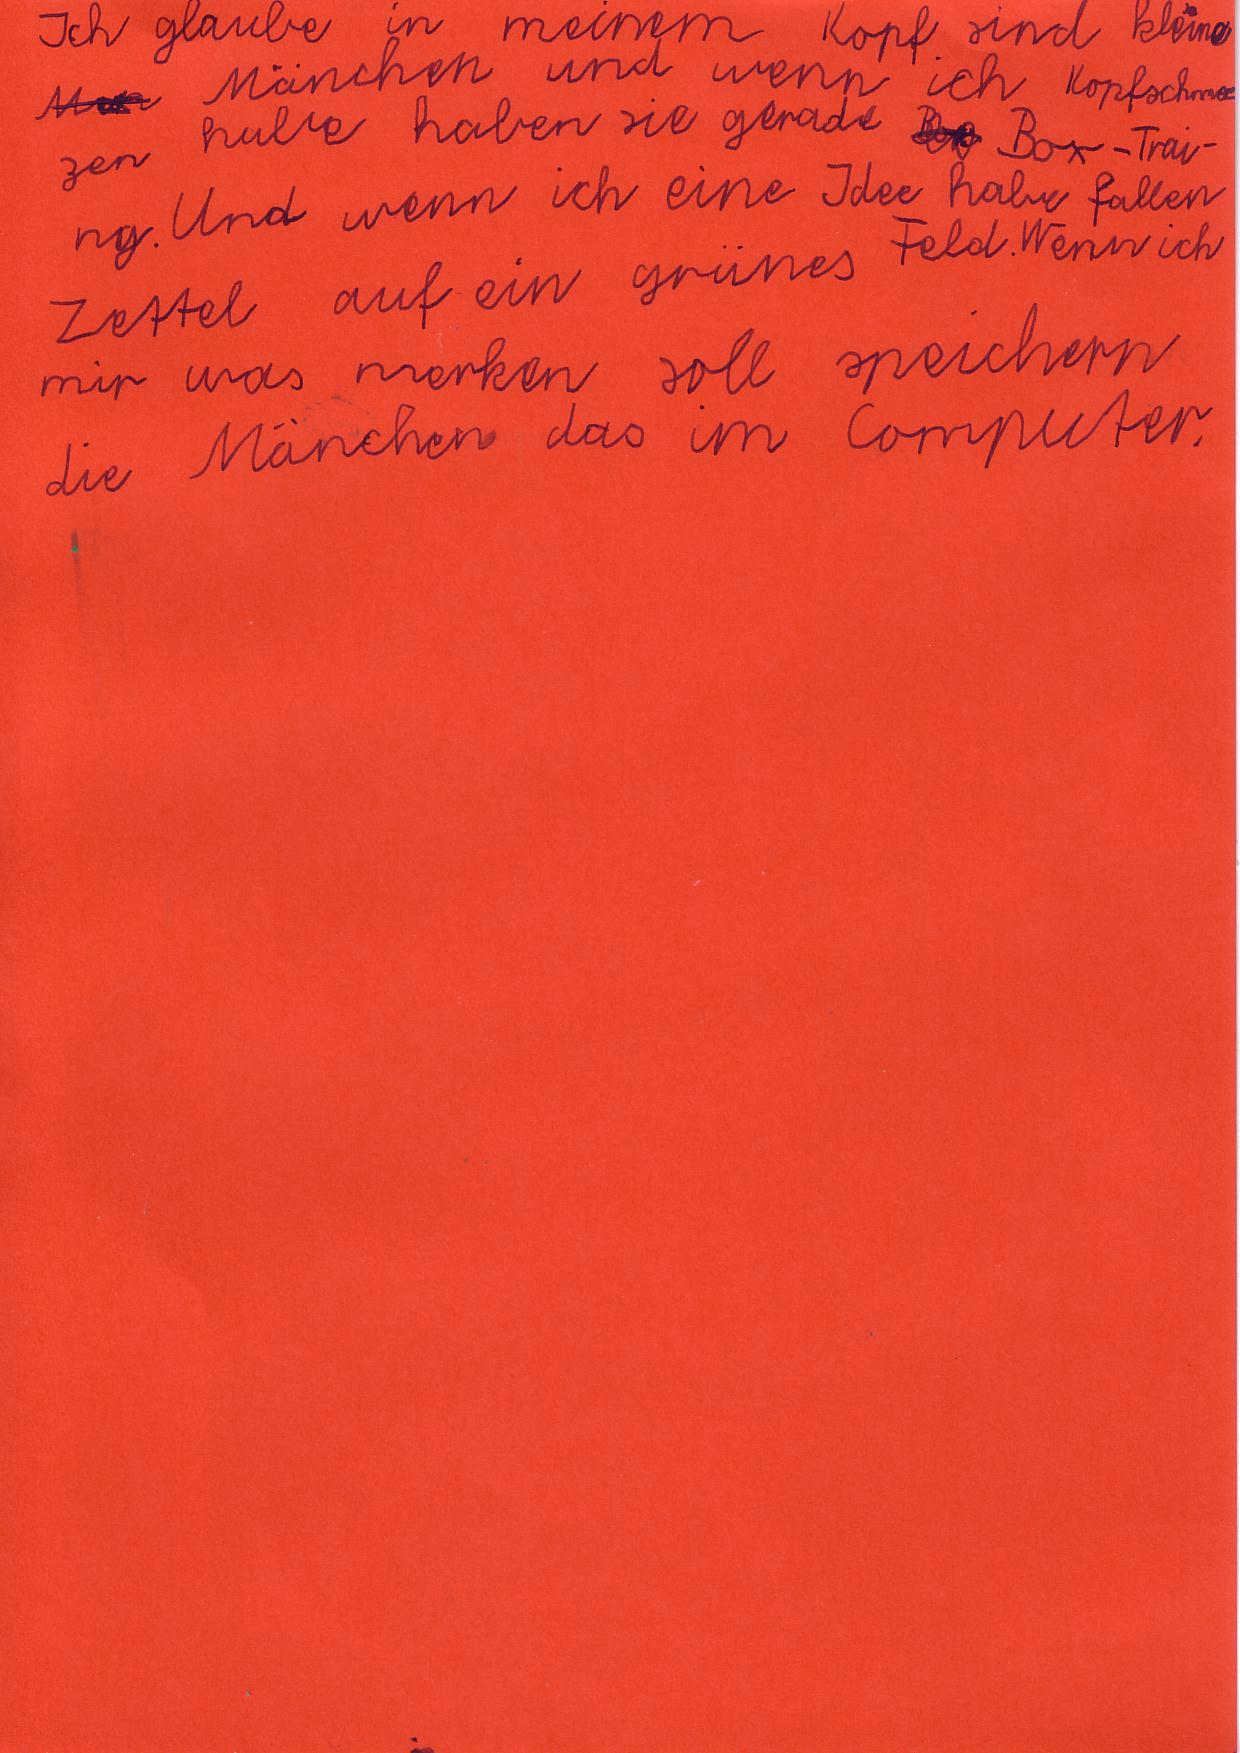 Ich glaube in meinem Kopf sind kleine
Mänchen und wenn ich Kopfschmer
zen habe haben sie gerade Box-Trai-
ng. Und wenn ich eine Idee habe fallen
Zettel auf ein grünes Feld. Wenn ich
mir was merken soll speichern
die Mänchen das im Computer.